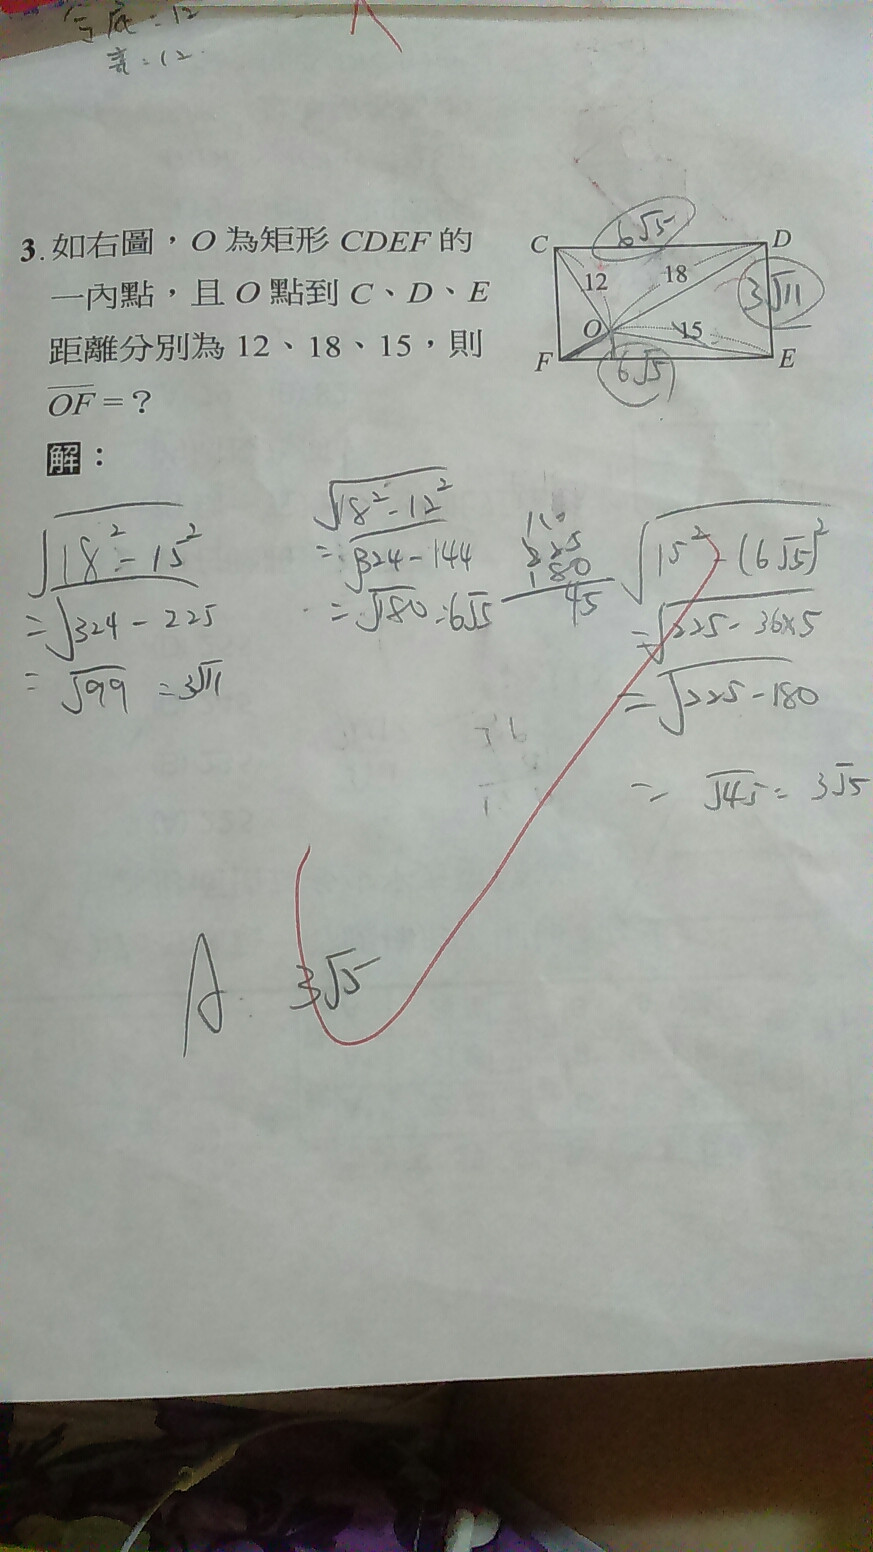 与底=12
高=12
3. 如右圖，O 為矩形 CDEF 的
一內點，且 O 點到 C、D、E
距離分別為 12、18、15，則
OF = ?
C
6√5
D
12
18
3√11
O
15
F
6√5
E
解：
√18²-15²
=√324-225
=√99=3√11
√18²-12²
=√324-144
=√180=6√5
225
180
45
√15²-(6√5)²
=√225-36×5
=√225-180
=√45=3√5
A 3√5